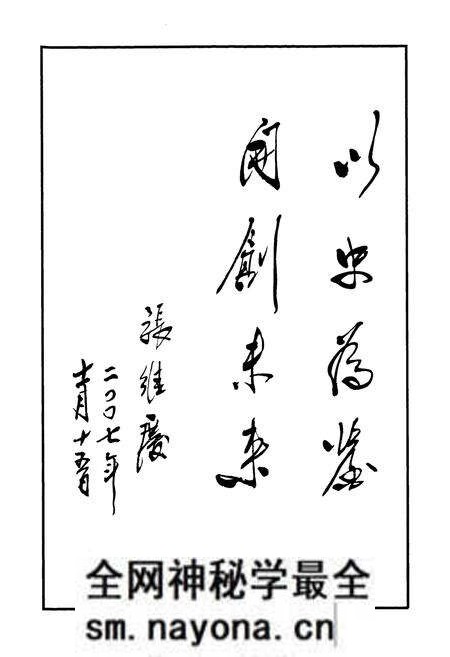 以史為鑒
開創未来
張維慶
二〇〇七年
十一月十五日
全网神秘学最全
sm.nayona.cn